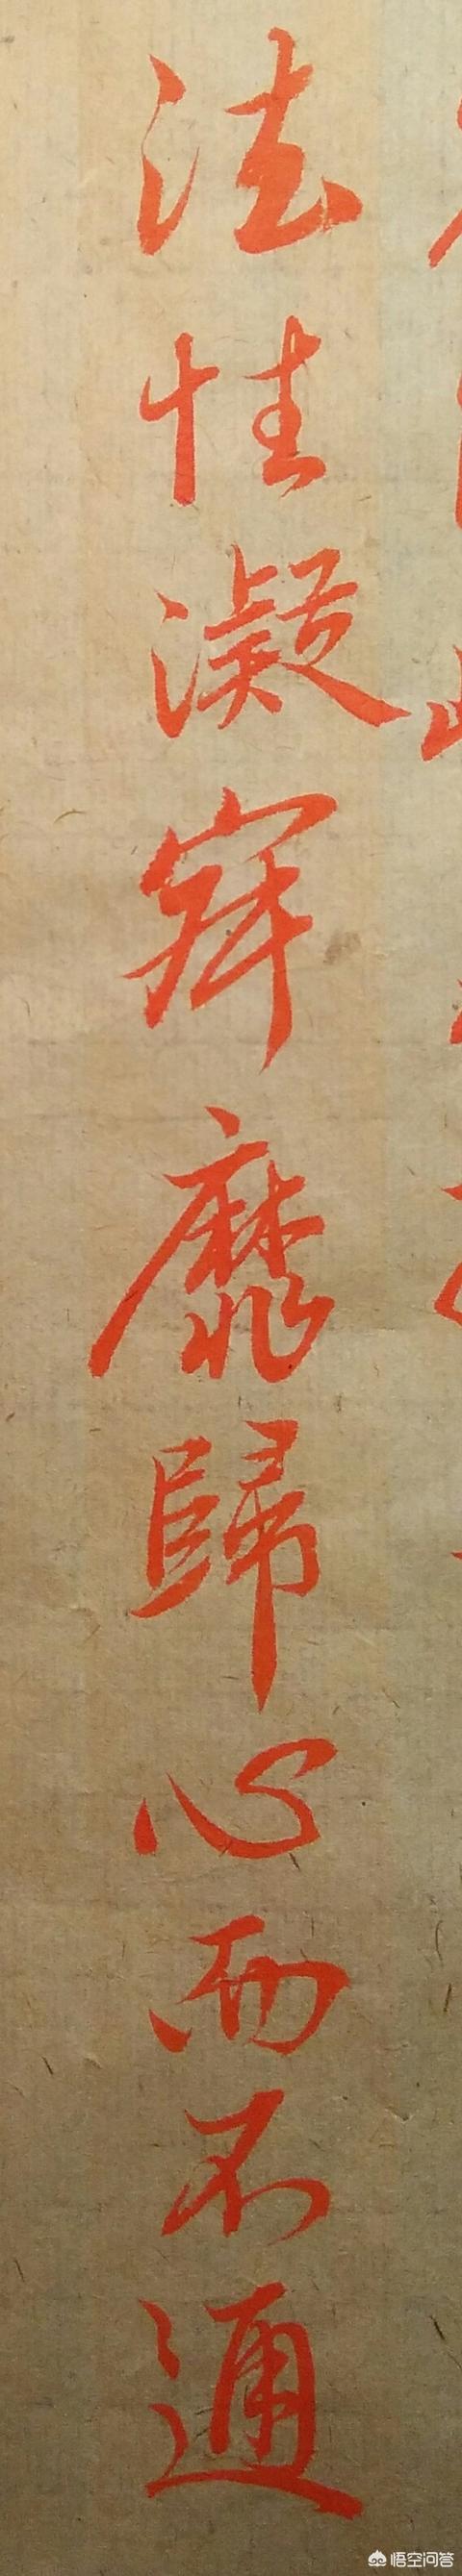 法性凝寂靡歸心而不通
悟空问答